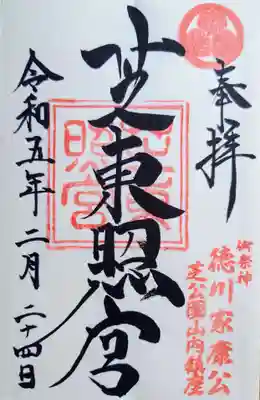 奉拝
御祭神
徳川家康公
芝公園山内鎮座
芝東照宮
令和五年二月二十四日